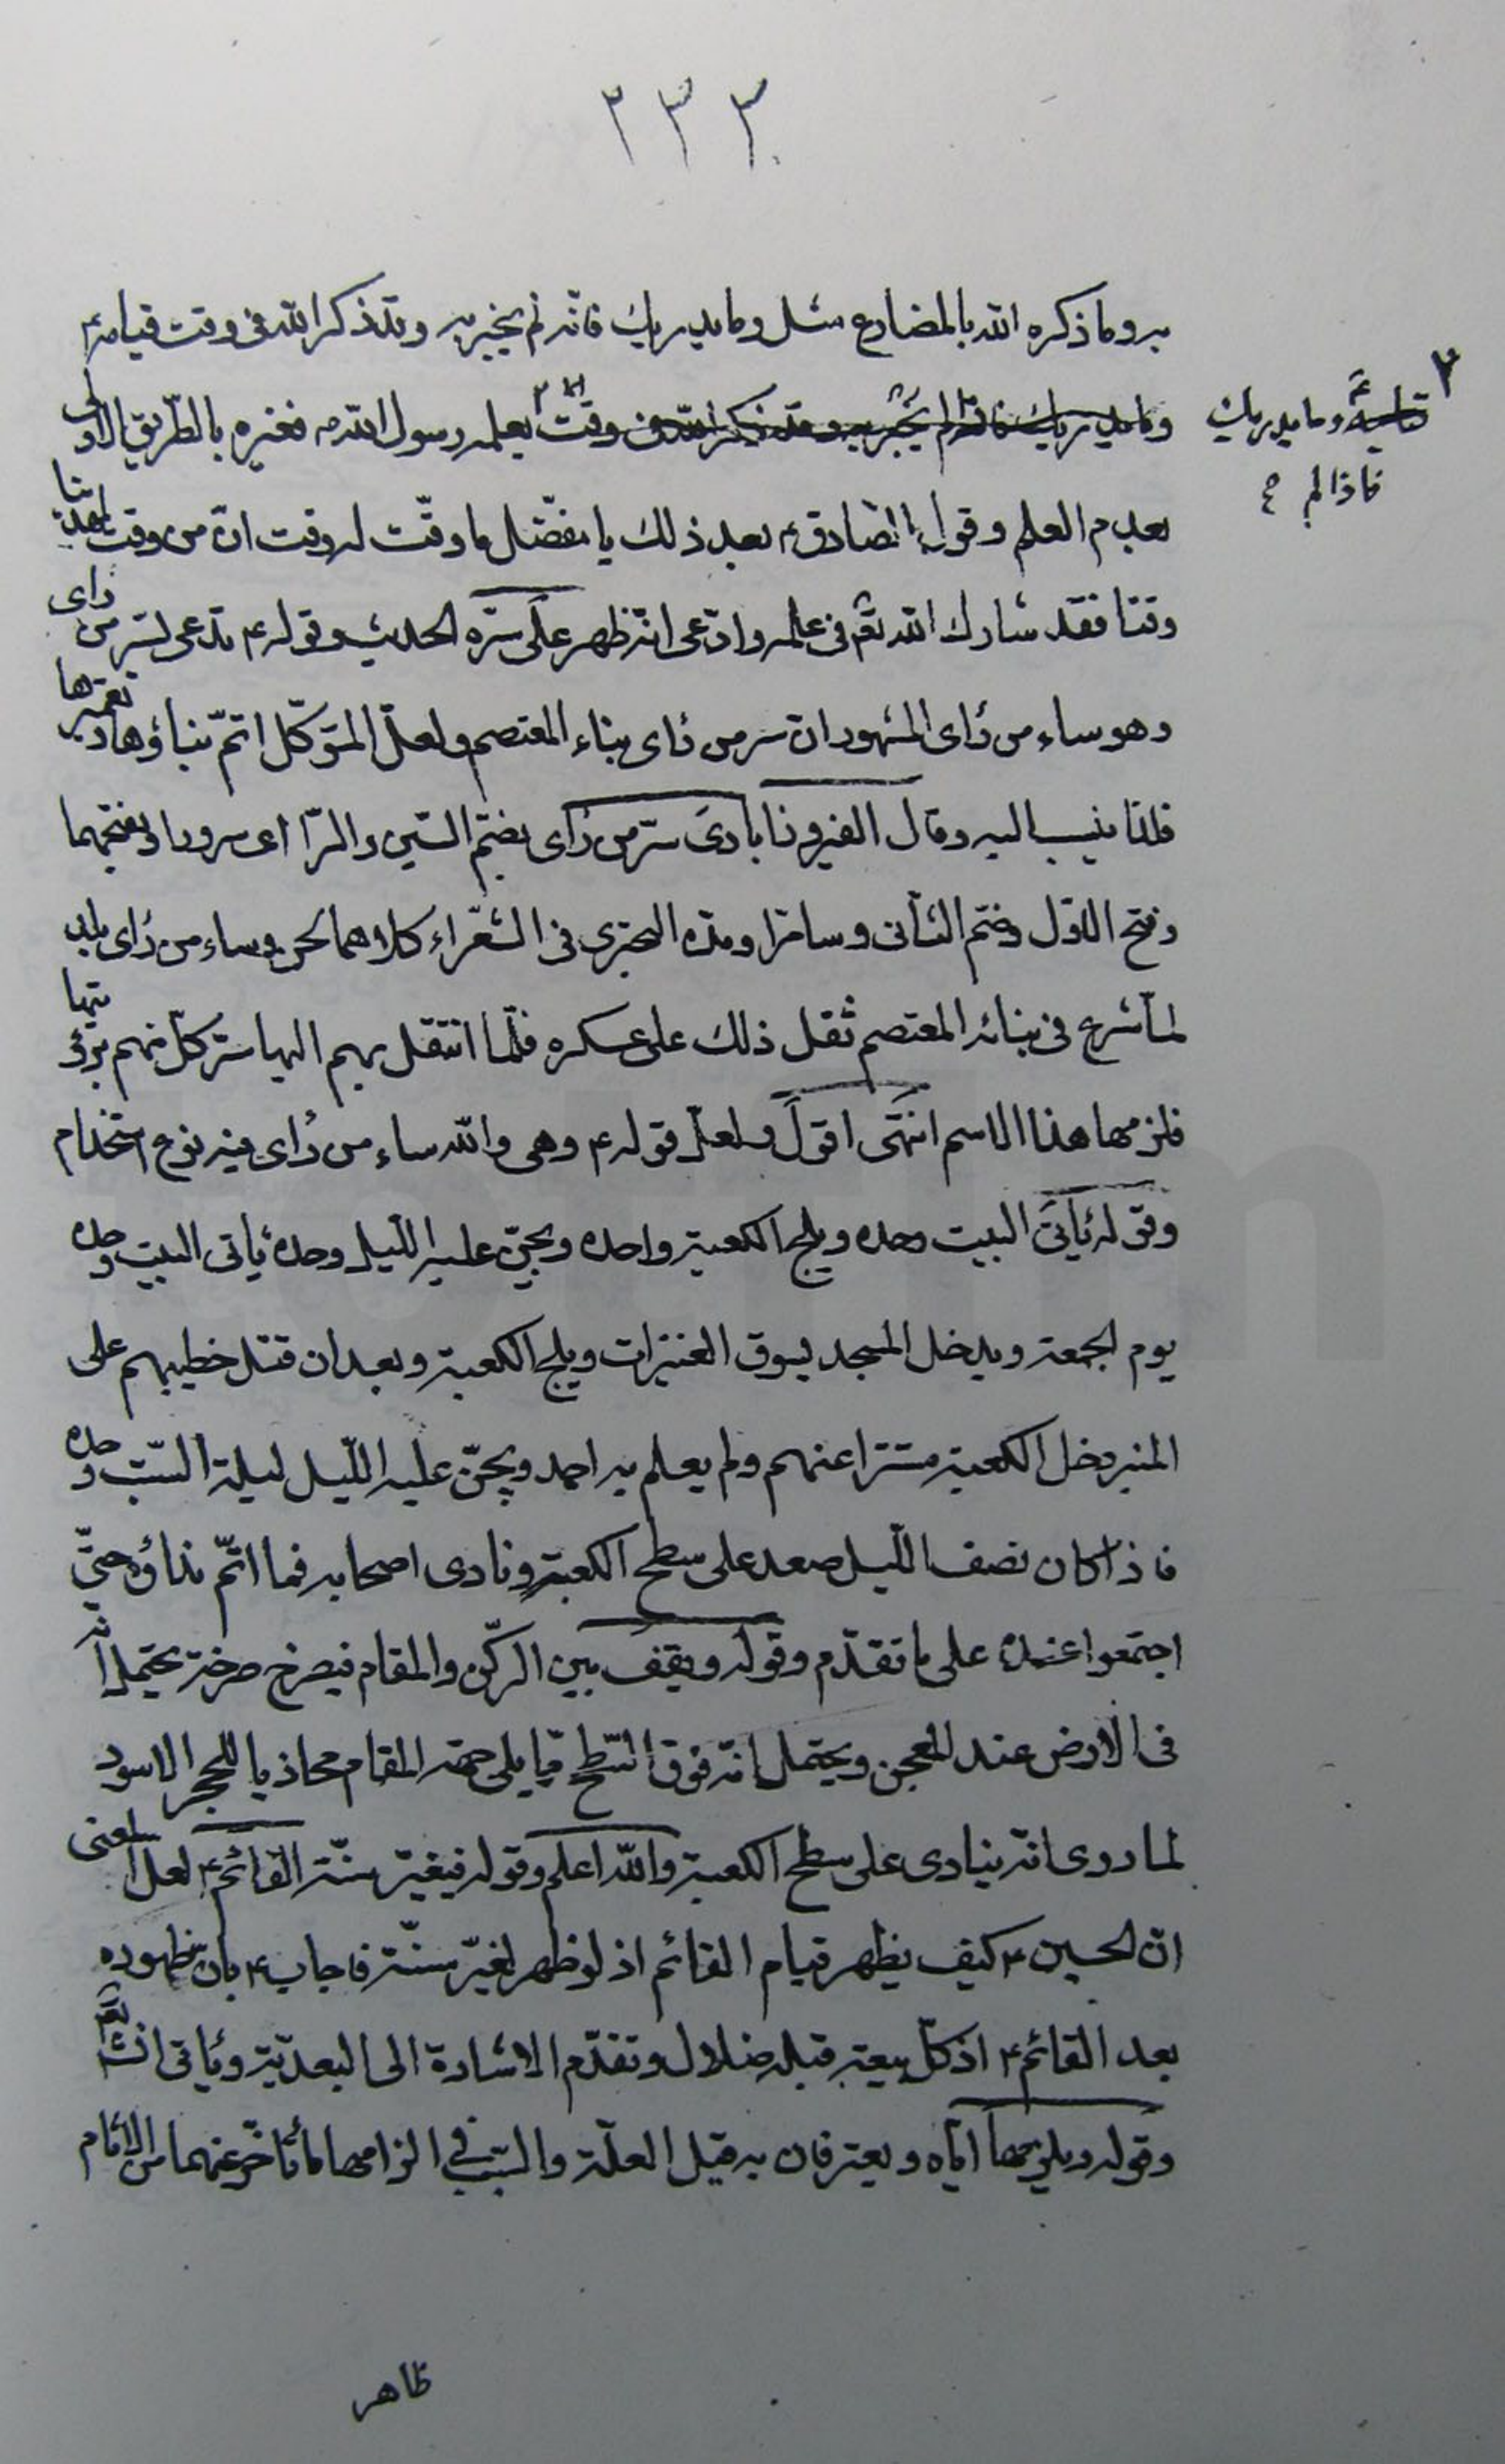 ٢٣٣
به وما ذكره الله بالمضارع مثل وما يدريك فانه لم يخبر به وقد ذكر الله في وقت قيامه ع
وما يدريك فانه لم يخبر به وقد ذكر الله في وقت يعلمه رسول الله ص فغيره بالطريق الاولى
قيامه وما يدريك
فاذا لم
بعدم العلم وقول الصادق ع بعد ذلك يا مفضل ما وقّت له وقت انّ من وقت لمهديّنا
وقتا فقد شارك الله تع في علمه وادّعى انّه ظهر على سرّه الحديث وقوله ع تدعى بسر من راى
وهو ساء من راى المشهور ان سر من راى بناء المعتصم ولعلّ المتوكّل اتمّ بناؤها وتعميرها
فلذا ينسب اليه وقال الفيروزابادي سرّ من راى بضمّ السّين والرّا اى سرور وبفتحهما
وفتح الاوّل وضم الثّانى وسامرّا ومدّه البحترى فى الشّعراء كلاهما لحن وساء من راى بلد
لمّا شرع فى بنائه المعتصم ثقل ذلك على عسكره فلّما انتقل بهم اليها سرّ كلّ منهم برؤيتها
فلزمها هذا الاسم انتهى اقول ولعلّ قوله ع وهى والله ساء من راى فيه نوع استخدام
وقوله يأتى البيت وحده ويلج الكعبة وحده ويجنّ عليه اللّيل وحده يأتى البيت وحده
يوم الجمعة ويدخل المسجد يسوق العنيزات ويلج الكعبة وبعد ان قتل خطيبهم على
المنبر دخل الكعبة مستترا عنهم ولم يعلم به احد ويجنّ عليه اللّيل ليلة السّبت وحده
فاذا كان نصف اللّيل صعد على سطح الكعبة ونادى اصحابه فما اتمّ نداؤه حتّى
اجتمعوا عنده على ما تقدّم وقوله ويقف بين الركن والمقام فيصرخ صرخة يحتمل انّه
فى الارض عند المعجن ويحتمل انّه فوق السّطح ممّا يلى جهة المقام محاذيا للحجر الاسود
لما روى انّه ينادى على سطح الكعبة والله اعلم وقوله فيغيّر سنّة القائم ع لعلّ المعنى
انّ الحسين ع كيف يظهر قيام القائم اذ لو ظهر لغيّر سنّته فاجاب ع بانّ ظهوره
بعد القائم ع اذ كلّ بيعة قبله ضلال وتقدّم الاشارة الى البعديّة ويأتى انشاء الله تع
وقوله ويلزمهما ايّاه ويعترفان به قيل العلّة والسّبب فى الزامهما ما تأخّر عنهما من الاثام
ظاهر